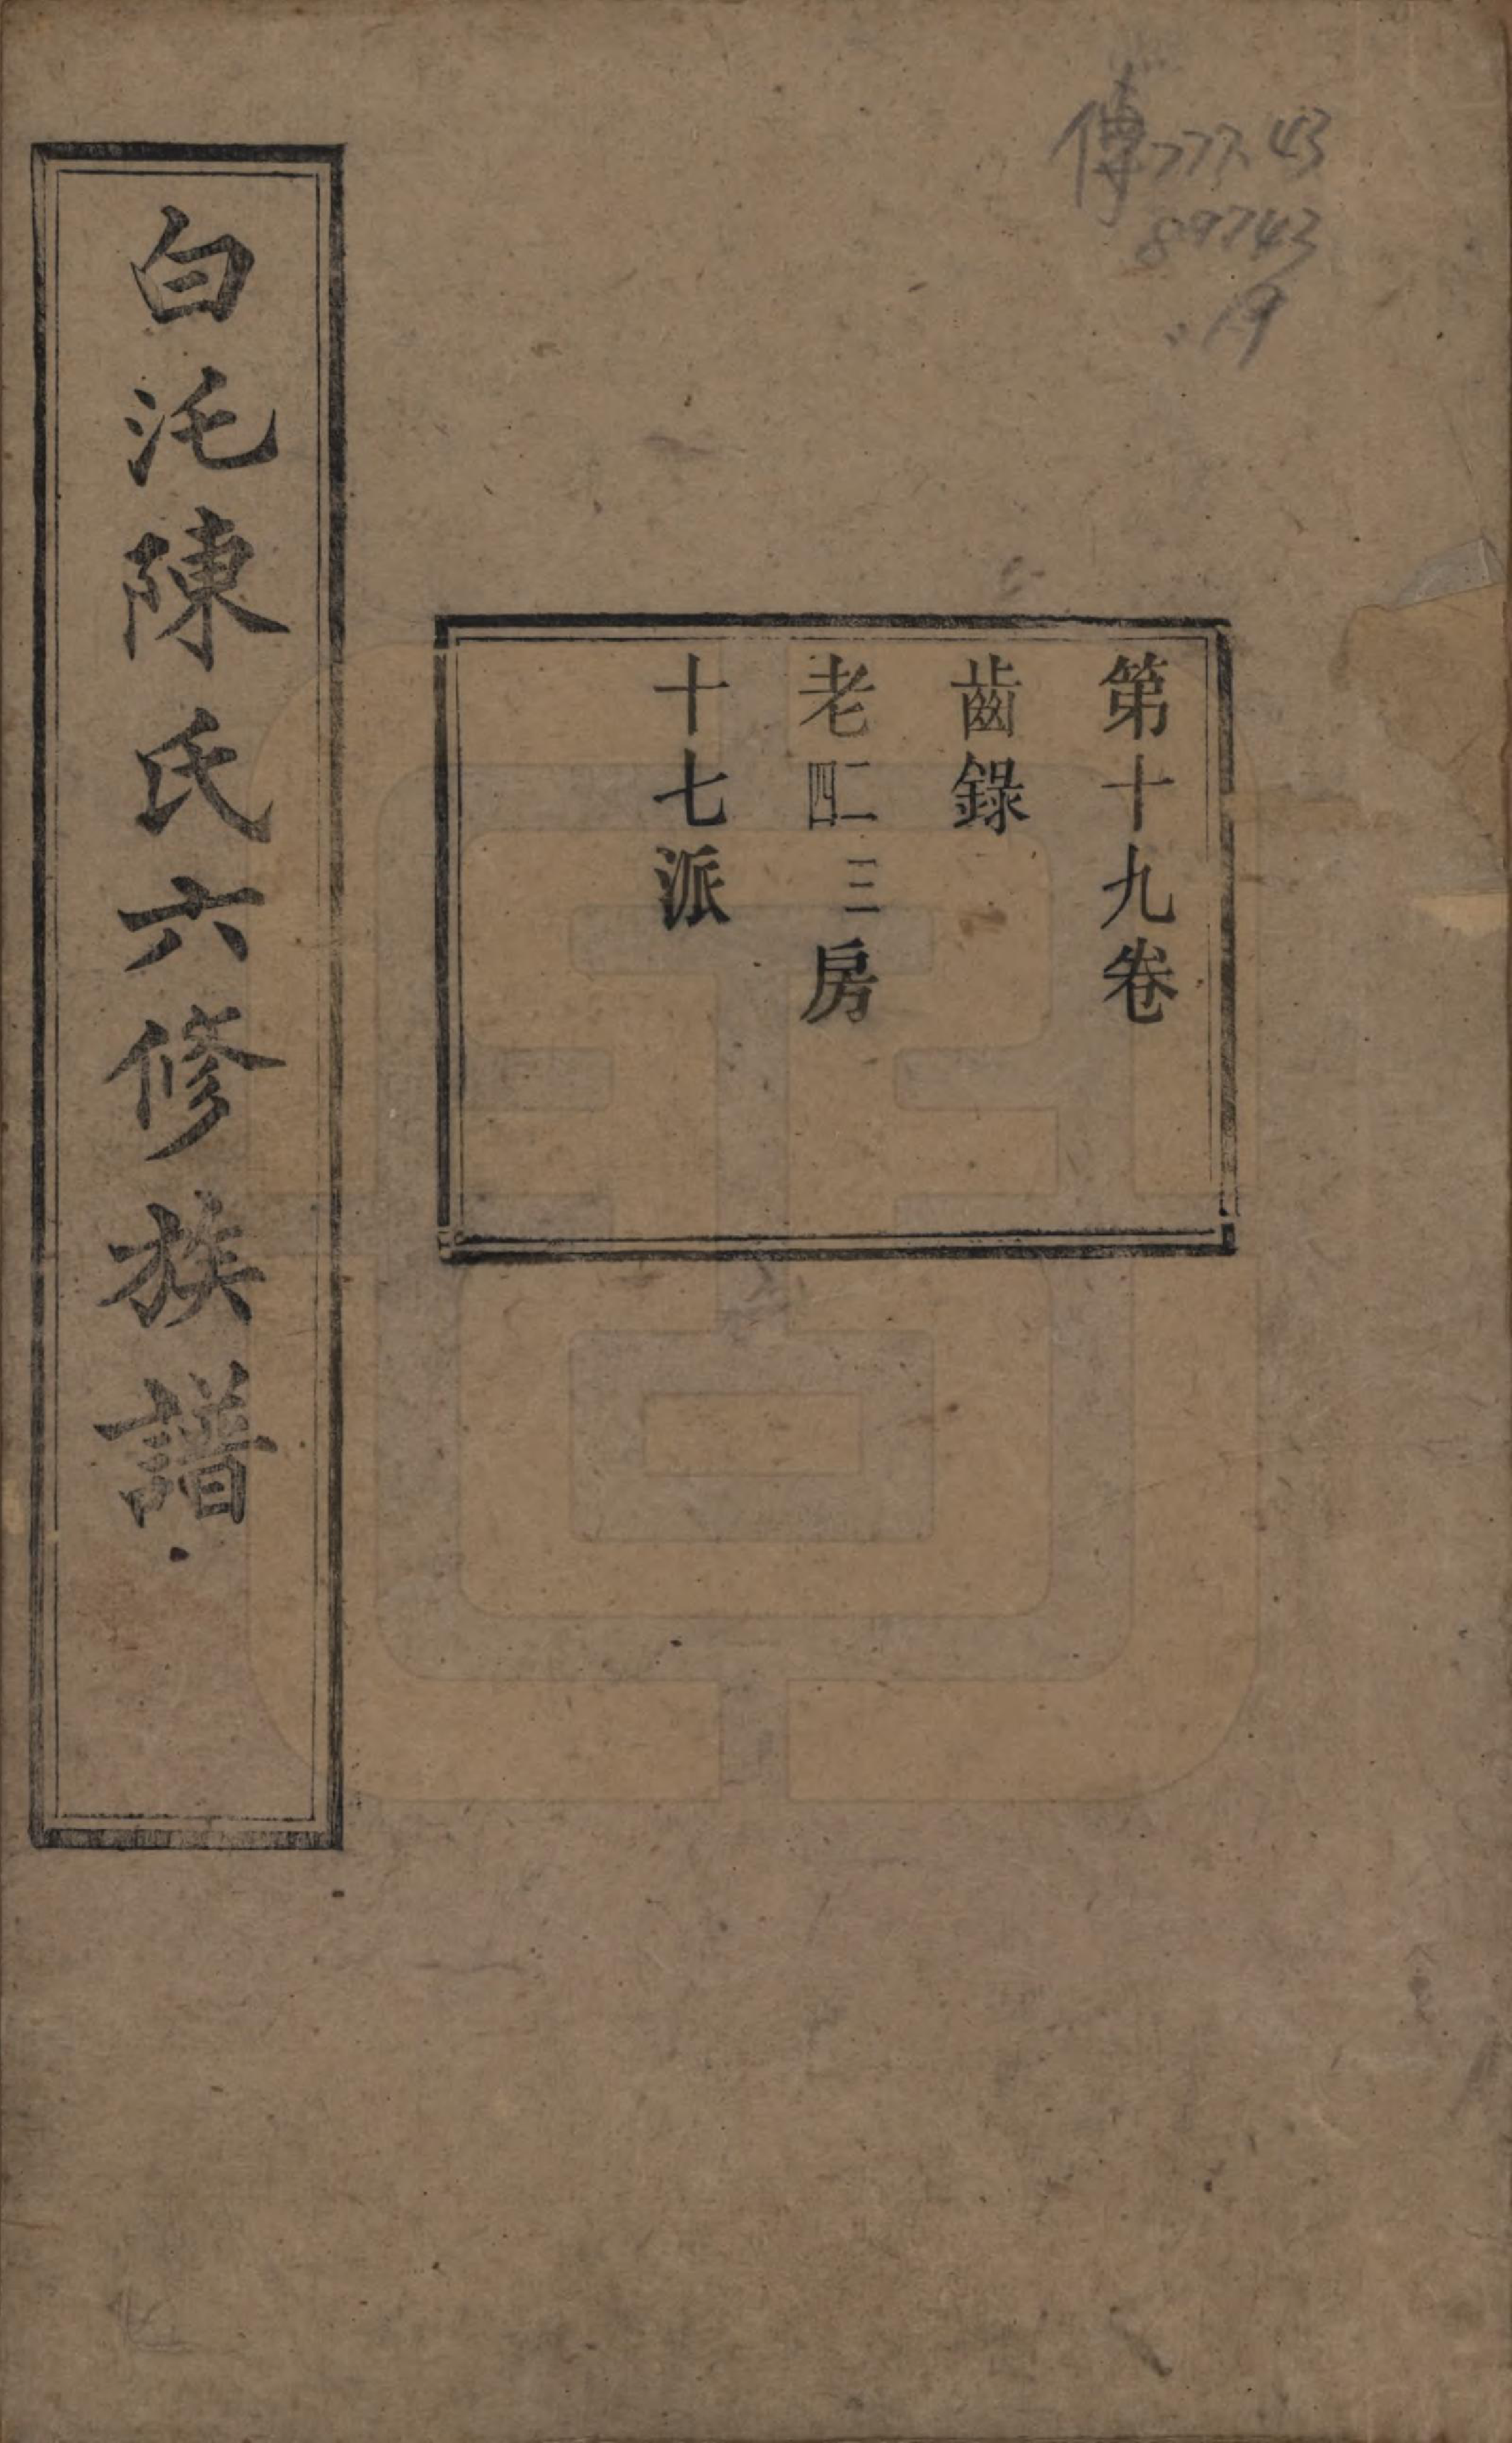 傳777.43
89743
:19
第十九卷
齒錄
老二四三房
十七派
白沱陳氏六修族譜